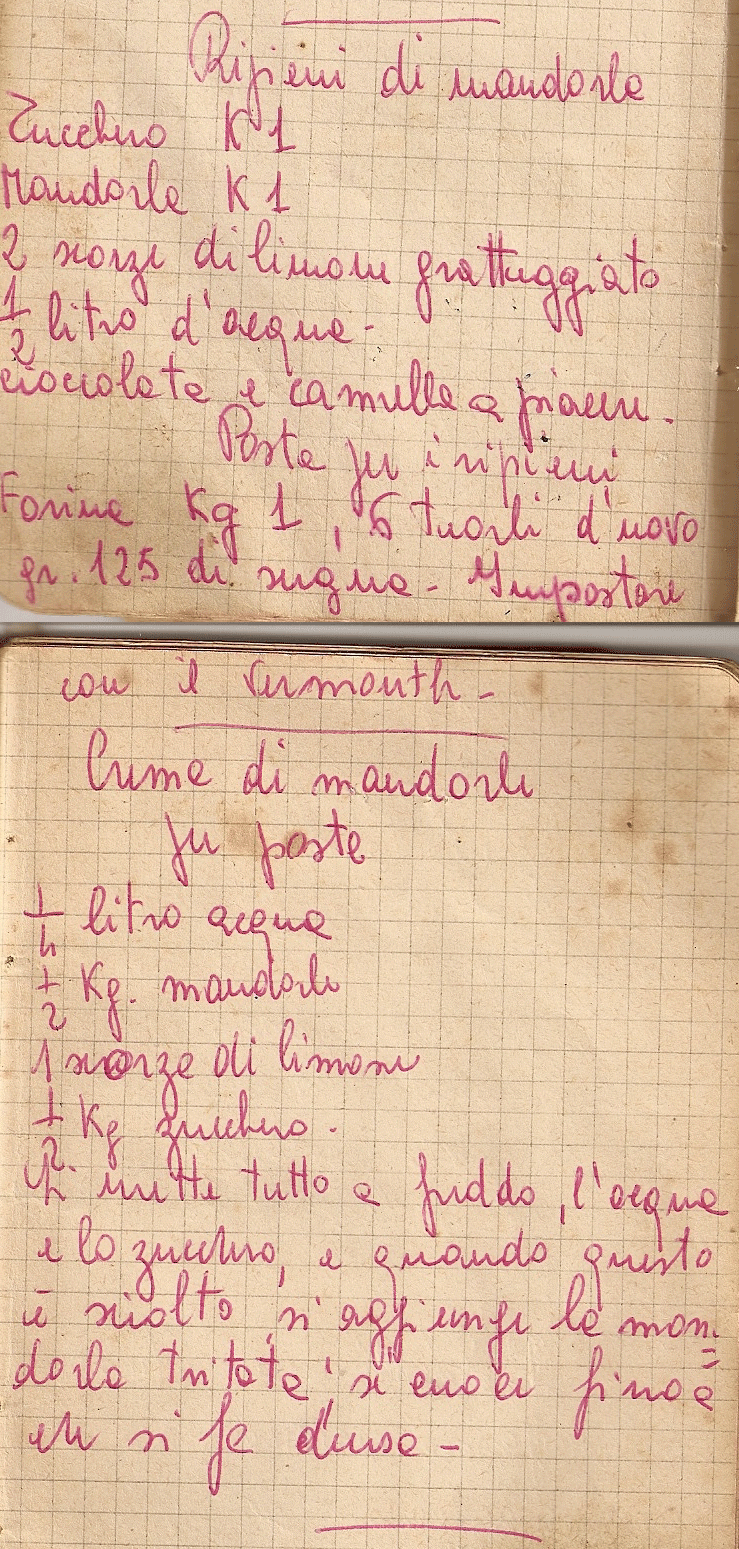 Ripieni di mandorla
Zucchero K 1
Mandorla K 1
2 scorze di limone grattuggiato
1/2 litro d'acqua -
cioccolata e cannella a piacere.
Pasta per i ripieni
Farina Kg 1, 6 tuorli d'uovo
gr. 125 di sugna - Impastare
con il vermouth -
Creme di mandorle
per paste
1/4 litro acqua
1/2 Kg. mandorle
1 scorza di limone
1/2 Kg zucchero.
Si mette tutto a freddo, l'acqua
e lo zucchero, e quando questo
è sciolto, si aggiunge la man=
dorla tritata, si cuoce fino a
che si fa densa -